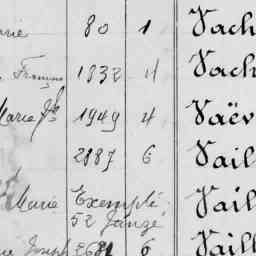 80 1 Vach
François 1832 4 Vach
Marie Jh 1949 4 Vaëv
2887 6 Vail
Marie Exempté Vail
52 Janzé
Joseph 2681 6 Vaill